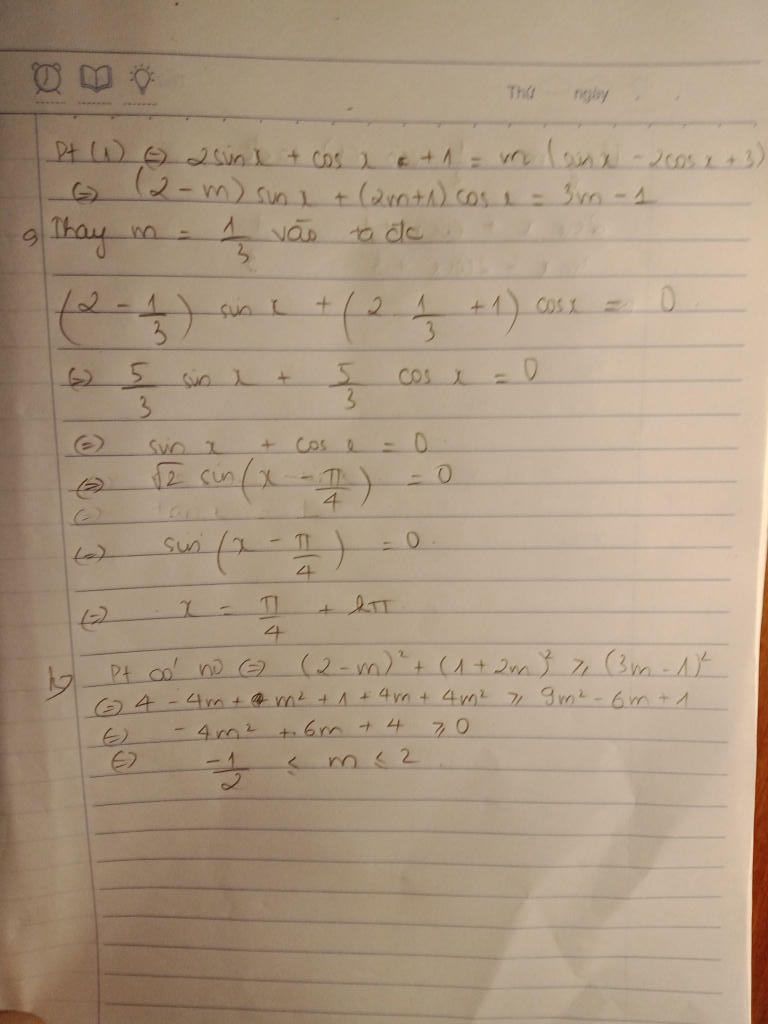 Thứ ngày
Pt (1) ⇔ 2sin x + cos x + 1 = m (sin x - 2cos x + 3)
⇔ (2 - m) sin x + (2m+1) cos x = 3m - 1
a, Thay m = 1/3 vào ta đc
(2 - 1/3) sin x + (2 1/3 + 1) cos x = 0
⇔ 5/3 sin x + 5/3 cos x = 0
⇔ sin x + cos x = 0
⇔ √2 sin(x - π/4) = 0
⇔
⇔ sin(x - π/4) = 0
⇔ x = π/4 + kπ
b, Pt có no ⇔ (2-m)² + (1+2m)² ⩾ (3m-1)²
⇔ 4 - 4m + m² + 1 + 4m + 4m² ⩾ 9m² - 6m + 1
⇔ - 4m² + 6m + 4 ⩾ 0
⇔ -1/2 ≤ m ≤ 2